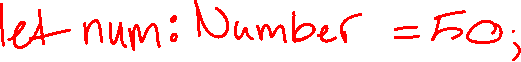 let num: Number = 50;